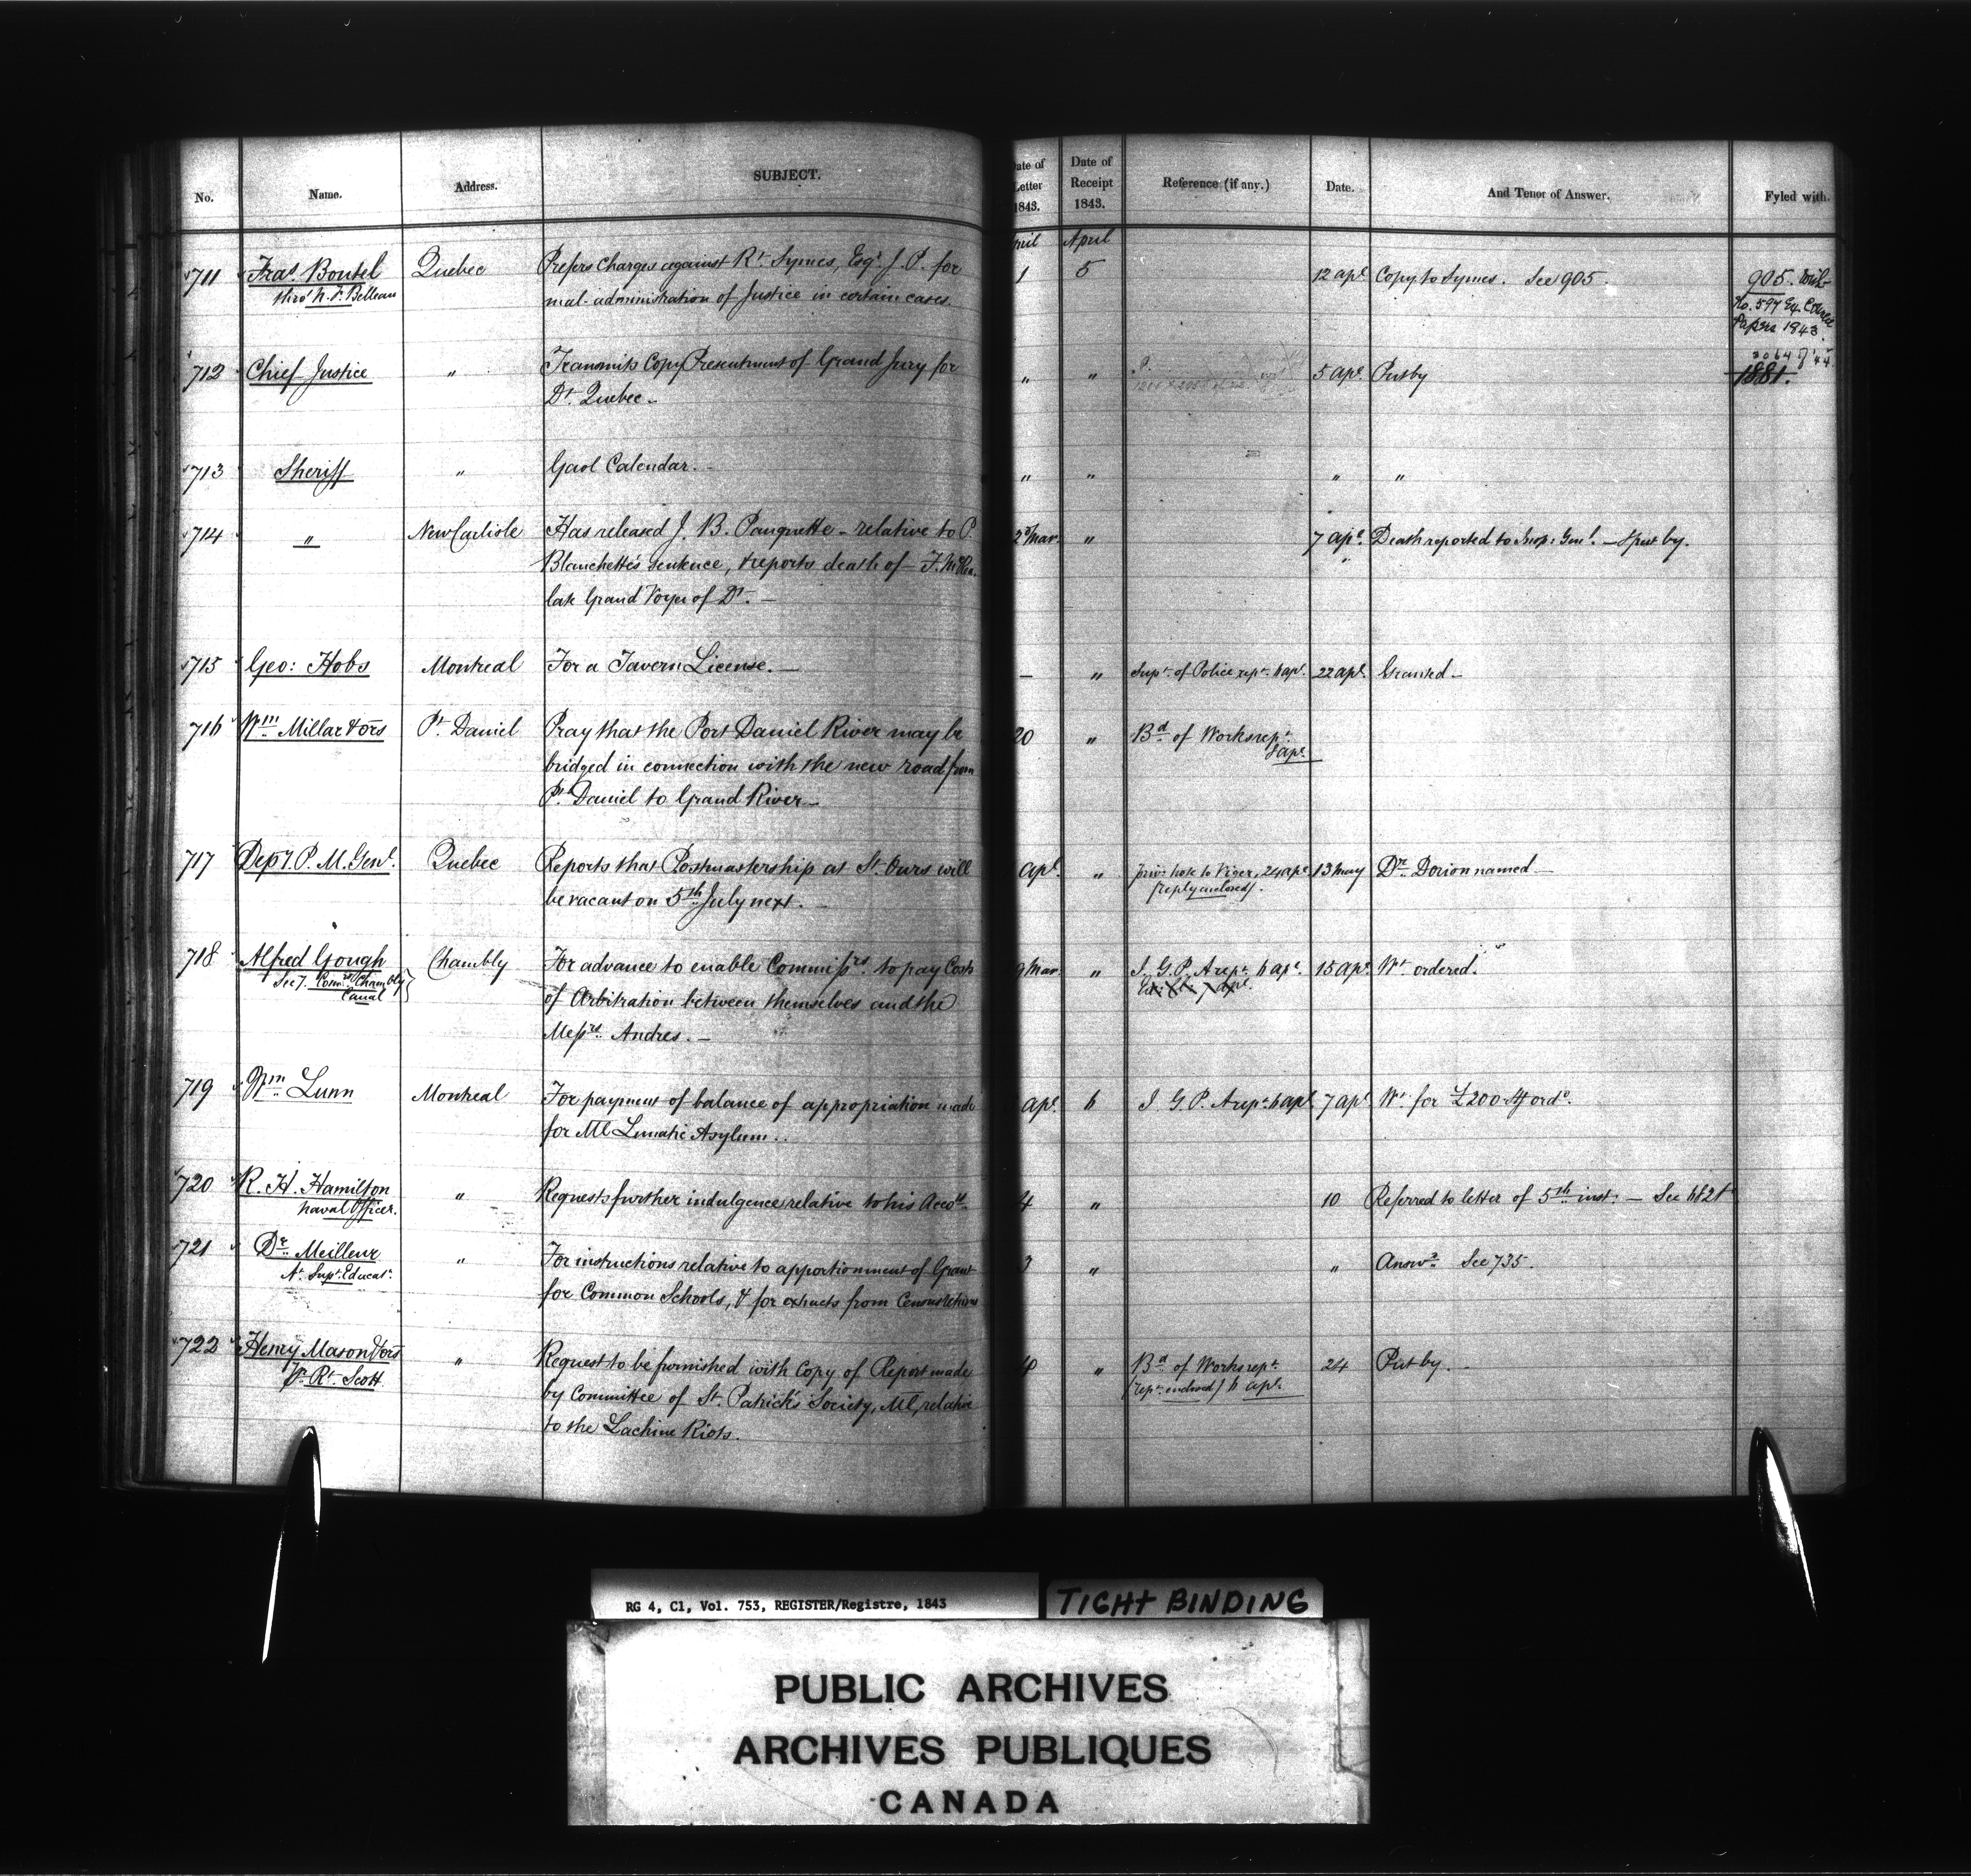 No. Name. Address. SUBJECT. ate of Letter 1843. Date of Receipt 1843. Reference (if any.) Date. And Tenor of Answer. Fyled with.
pril April
711 Fras. Boutel Quebec Prefers Charges against Rt. Symes, Esqr. J. P. for 1 5 12 apl. Copy to Symes. See 905. 905. with
thro' N. F. Belleau mal-administration of Justice in certain cases. No. 597 Ex. Council
Papers 1843
712 Chief Justice " Transmits Copy Presentment of Grand Jury for " " 5 apl. Put by 1881.
Dt. Quebec —
713 Sheriff " Gaol Calendar. — " " " "
714 " New Carlisle Has released J. B. Pauquette — relative to P. 23 Mar. " 7 apl. Death reported to Insp: Genl. — & put by.
Blanchette's Sentence, & reports death of F.
late Grand Voyer of Dt. —
715 Geo: Hobs Montreal For a Tavern License. — — " Supt. of Police rept. 6 apl. 22 apl. Granted —
716 Wm. Millar & ors Pt. Daniel Pray that the Port Daniel River may be 20 " Bd. of Works rept.
bridged in connection with the new road from apl.
Pt. Daniel to Grand River —
717 Depy. P. M. Genl. Quebec Reports that Postmastership at St. Ours will apl. " priv: note to Viger, 24 apl. 13 May Dr. Dorion named —
be vacant on 5th. July next. — (reply enclosed).
718 Alfred Gough Chambly For advance to enable Commissrs. to pay Costs 9 Mar. " I. G. P. A rept. 6 apl. 15 apl. Wt. ordered.
Secy. Comrs. Chambly of Arbitration between themselves and the
Canal Messrs. Andres. —
719 Wm. Lunn Montreal For payment of balance of appropriation made apl. 6 I. G. P. A rept. 6 apl. 7 apl. Wt. for £200 ordd.
for Ml. Lunatic Asylum..
720 R. H. Hamilton " Requests further indulgence relative to his Accots. 4 " 10 Referred to letter of 5th. inst. — See 682
Naval Officer.
721 Dr. Meilleur " For instructions relative to apportionment of Grant 3 " " Answd. See 735.
At. Supt. Educat. for Common Schools, & for extracts from Census Returns
722 Henry Mason & ors " Request to be furnished with Copy of Report made " Bd. of Works rept. 24 Put by. —
Pr. Rt. Scott by Committee of St. Patrick's Society, Ml. relative (rept. enclosed) 6 apl.
to the Lachine Riots.
RG 4, C1, Vol. 753, REGISTER/Registre, 1843
TIGHT BINDING
PUBLIC ARCHIVES
ARCHIVES PUBLIQUES
CANADA